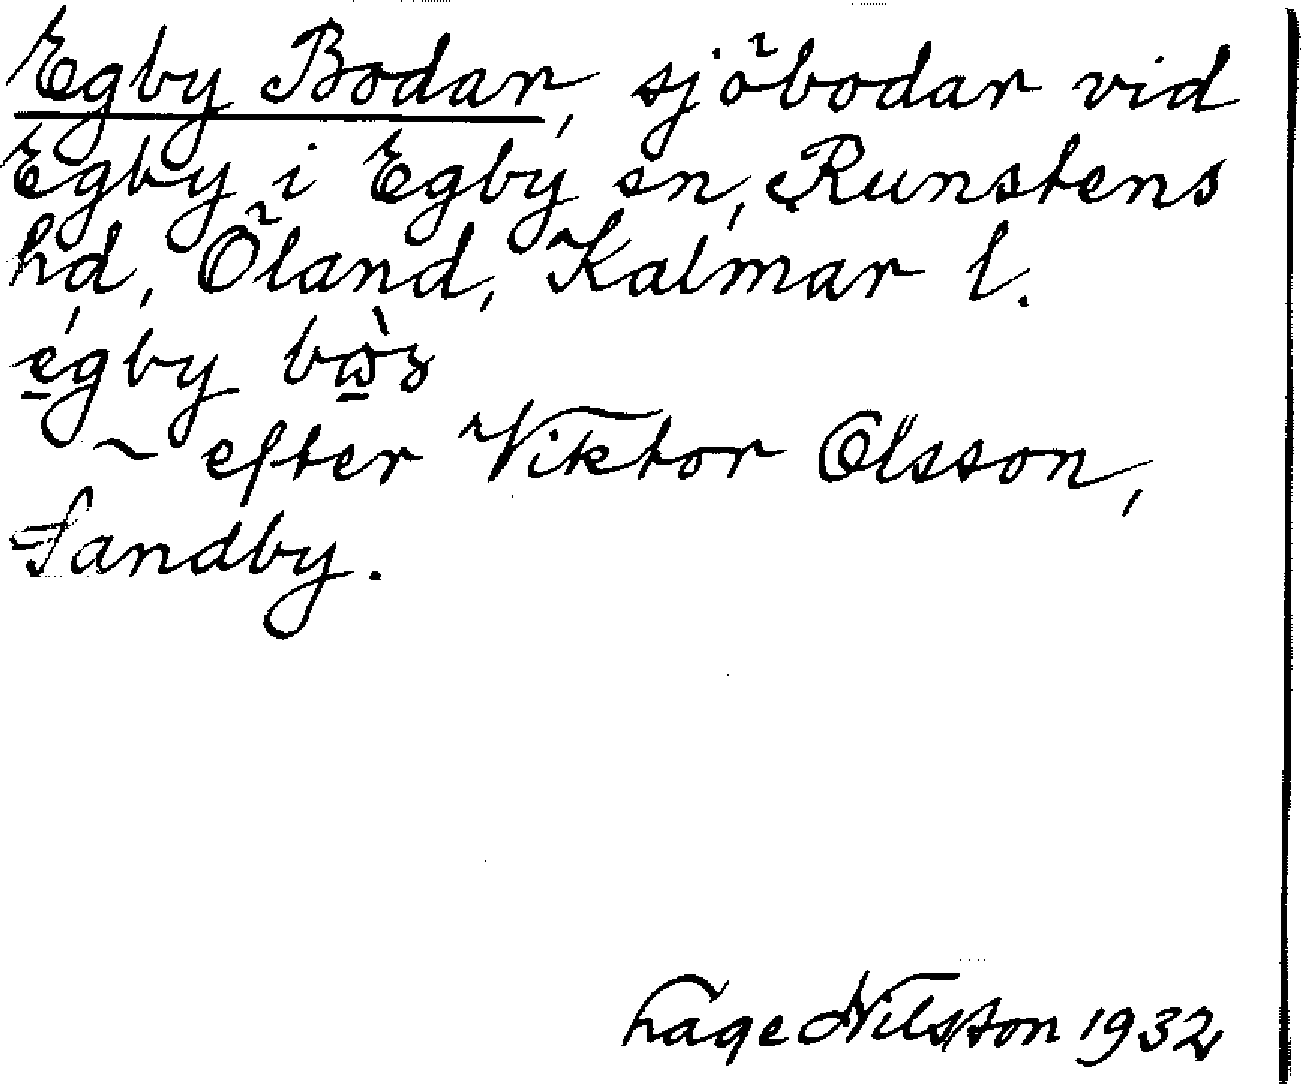 Egby Bodar, sjöbodar vid
Egby i Egby sn, Runstens
hd, Öland, Kalmar l.
égby
~ efter Viktor Olsson,
Sandby.
Hage Nilsson 1932